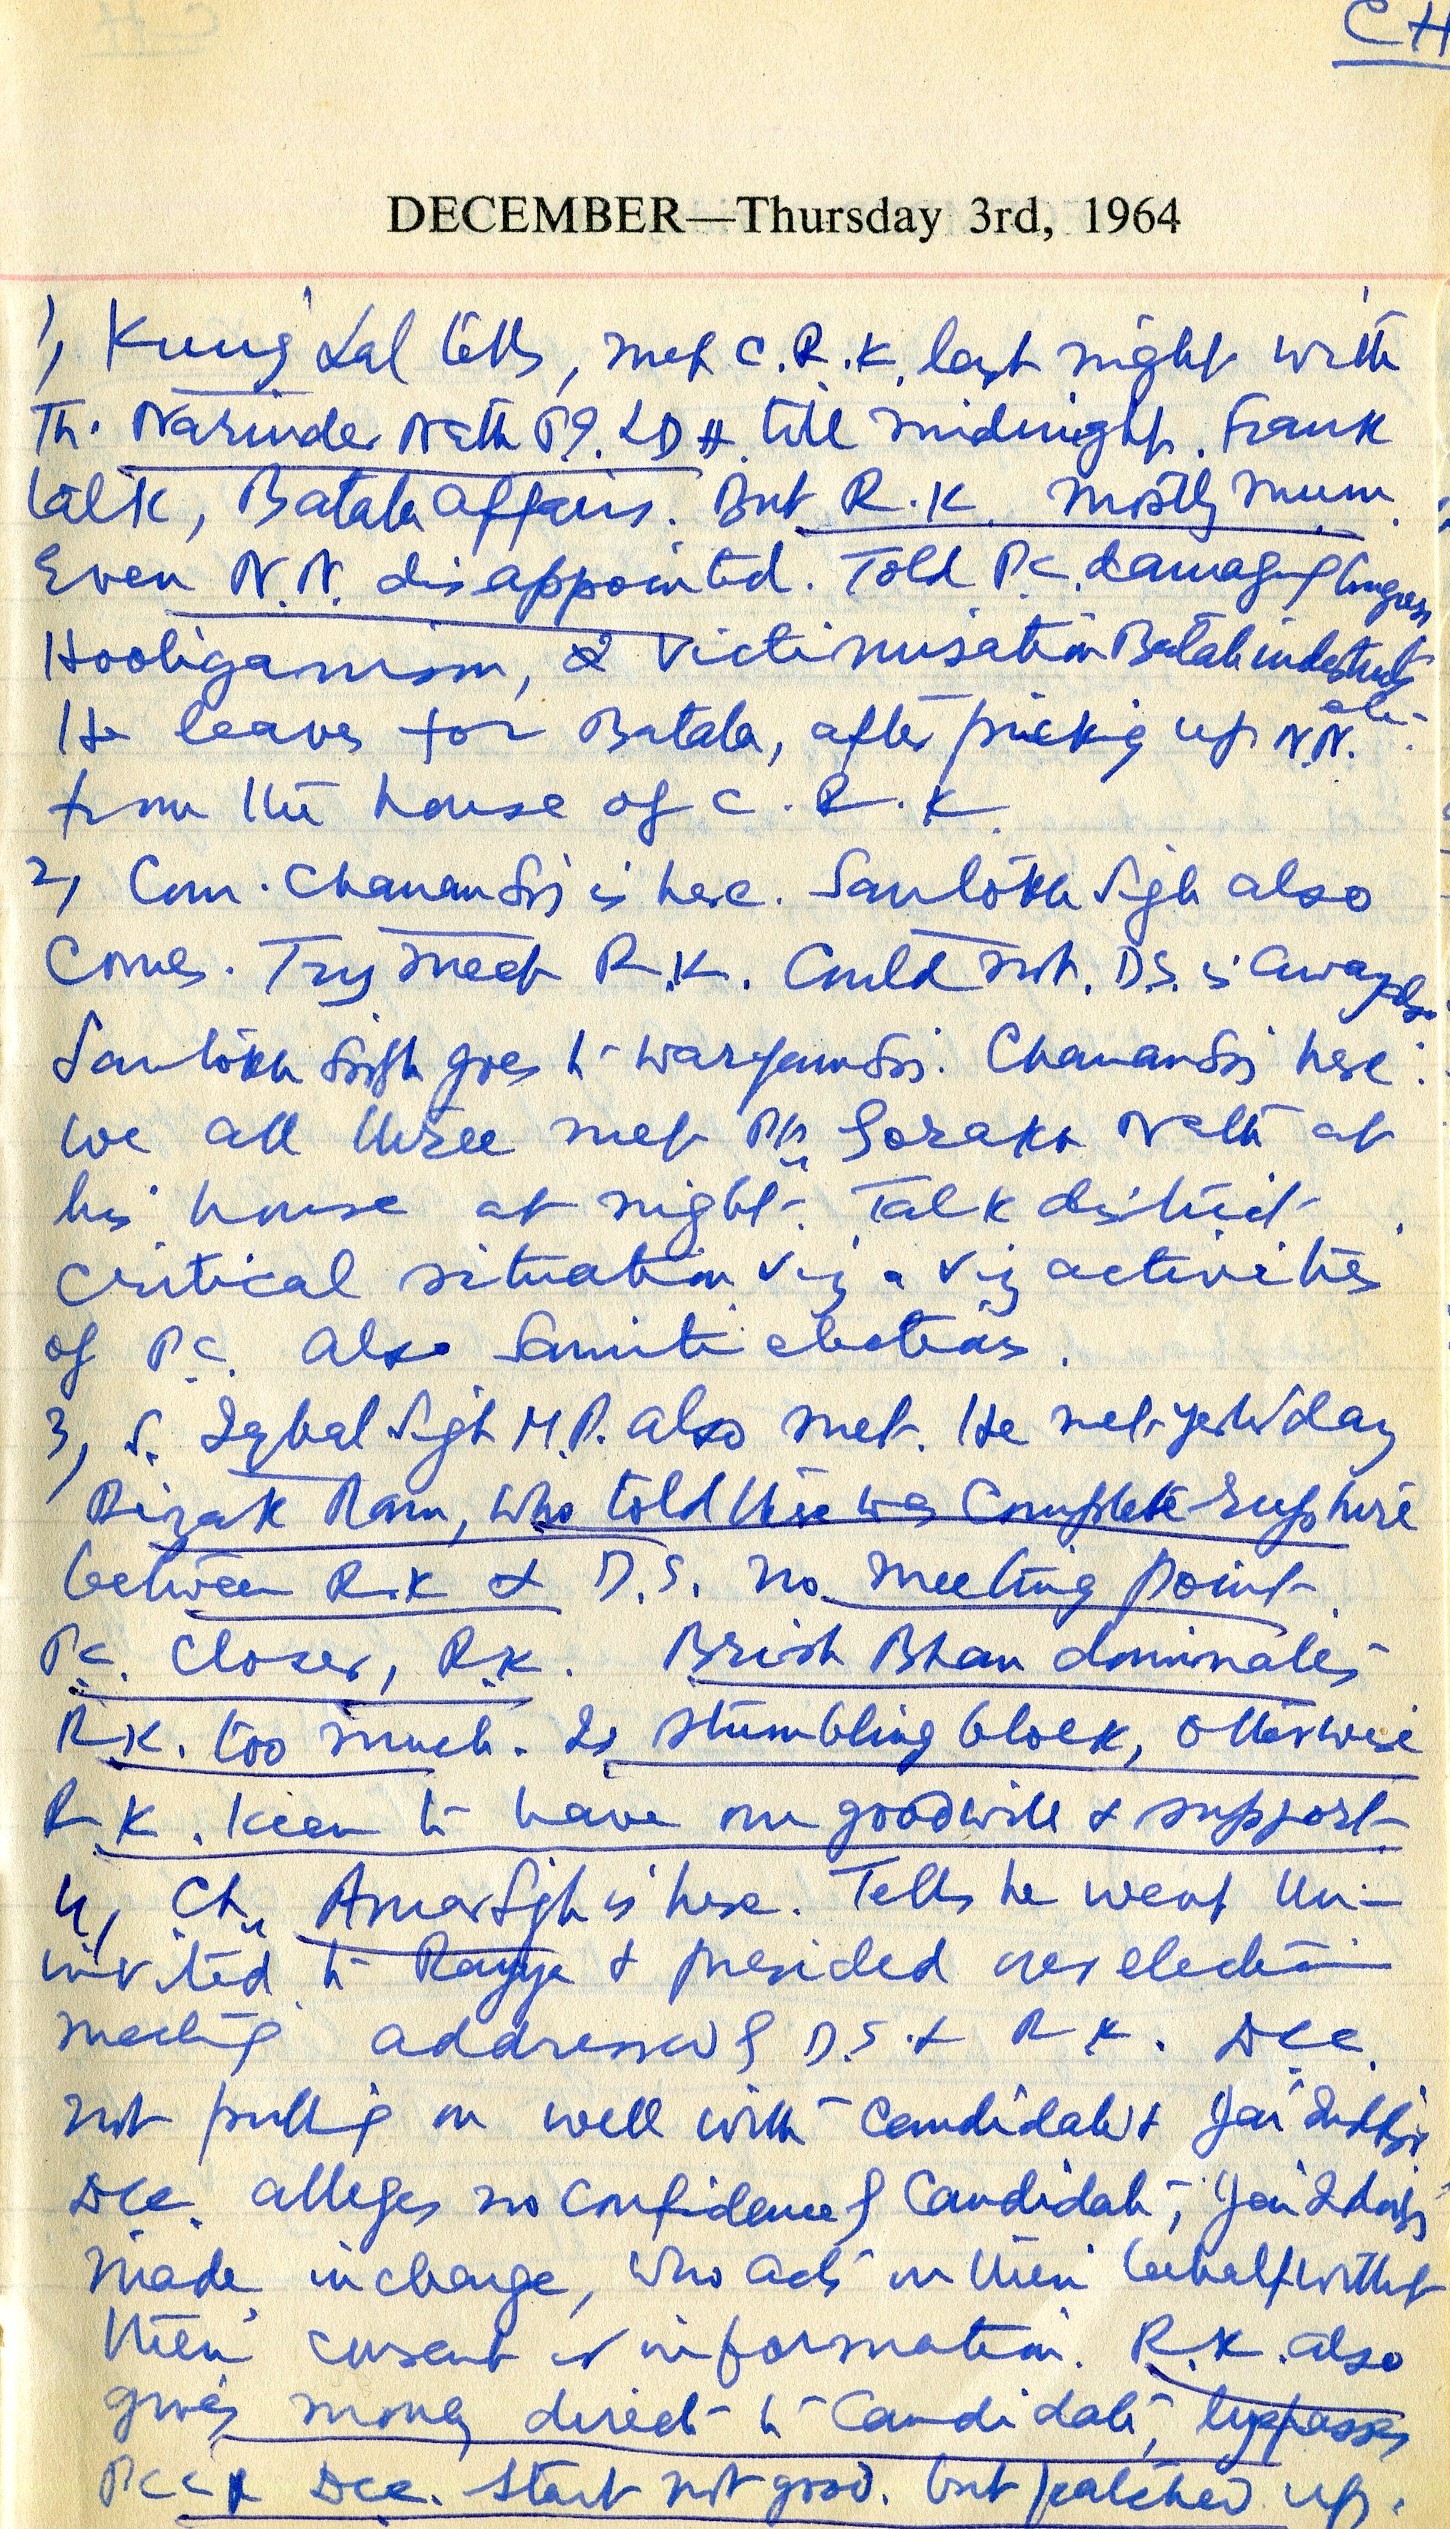 CH
DECEMBER—Thursday 3rd, 1964
1, Kunj Lal tells, met C.R.K. last night with
Th. Narinder Nath LDH. till midnight. Frank
talk, Batala affairs. But R.K. mostly mum.
Even N.N. disappointed. Told P.C. damaging Congress
Hooliganism, & Victimisation Batala industrialists
etc.
He leaves for Batala, after picking up N.N.
from the house of C.R.K.
2, Com. Chanan Sij is here. Santokh Sigh also
comes. Try meet R.K. Could not. D.S. is away also
Santokh Sigh goes to Waryam Sij. Chanan Sij here.
We all three met Pn Gorakh Nath at
his house at night. Talk district
critical situation viz a viz activities
of P.C. also Samiti elections.
3, S. Iqbal Sigh M.P. also met. He met yesterday
Rizak Ram, who told there was Complete rupture
between R.K & D.S. no meeting point.
P.C. closer, R.K. Brish Bhan dominates
R.K. too much. Is stumbling block, otherwise
R.K. keen to have our goodwill & support
4, Ch. Amar Sigh is here. Tells he went un-
invited to Rayya & presided over election
meeting addressed by D.S. & R.K. Dcc.
not pulling on well with candidate & Jai
Dcc. alleges no confidence of Candidate, Jai
made incharge, who acts on their behalf without
their consent or information. R.K. also
gives money direct to Candidate, bypasses
Pcc & Dcc. Start not good. but patched up.